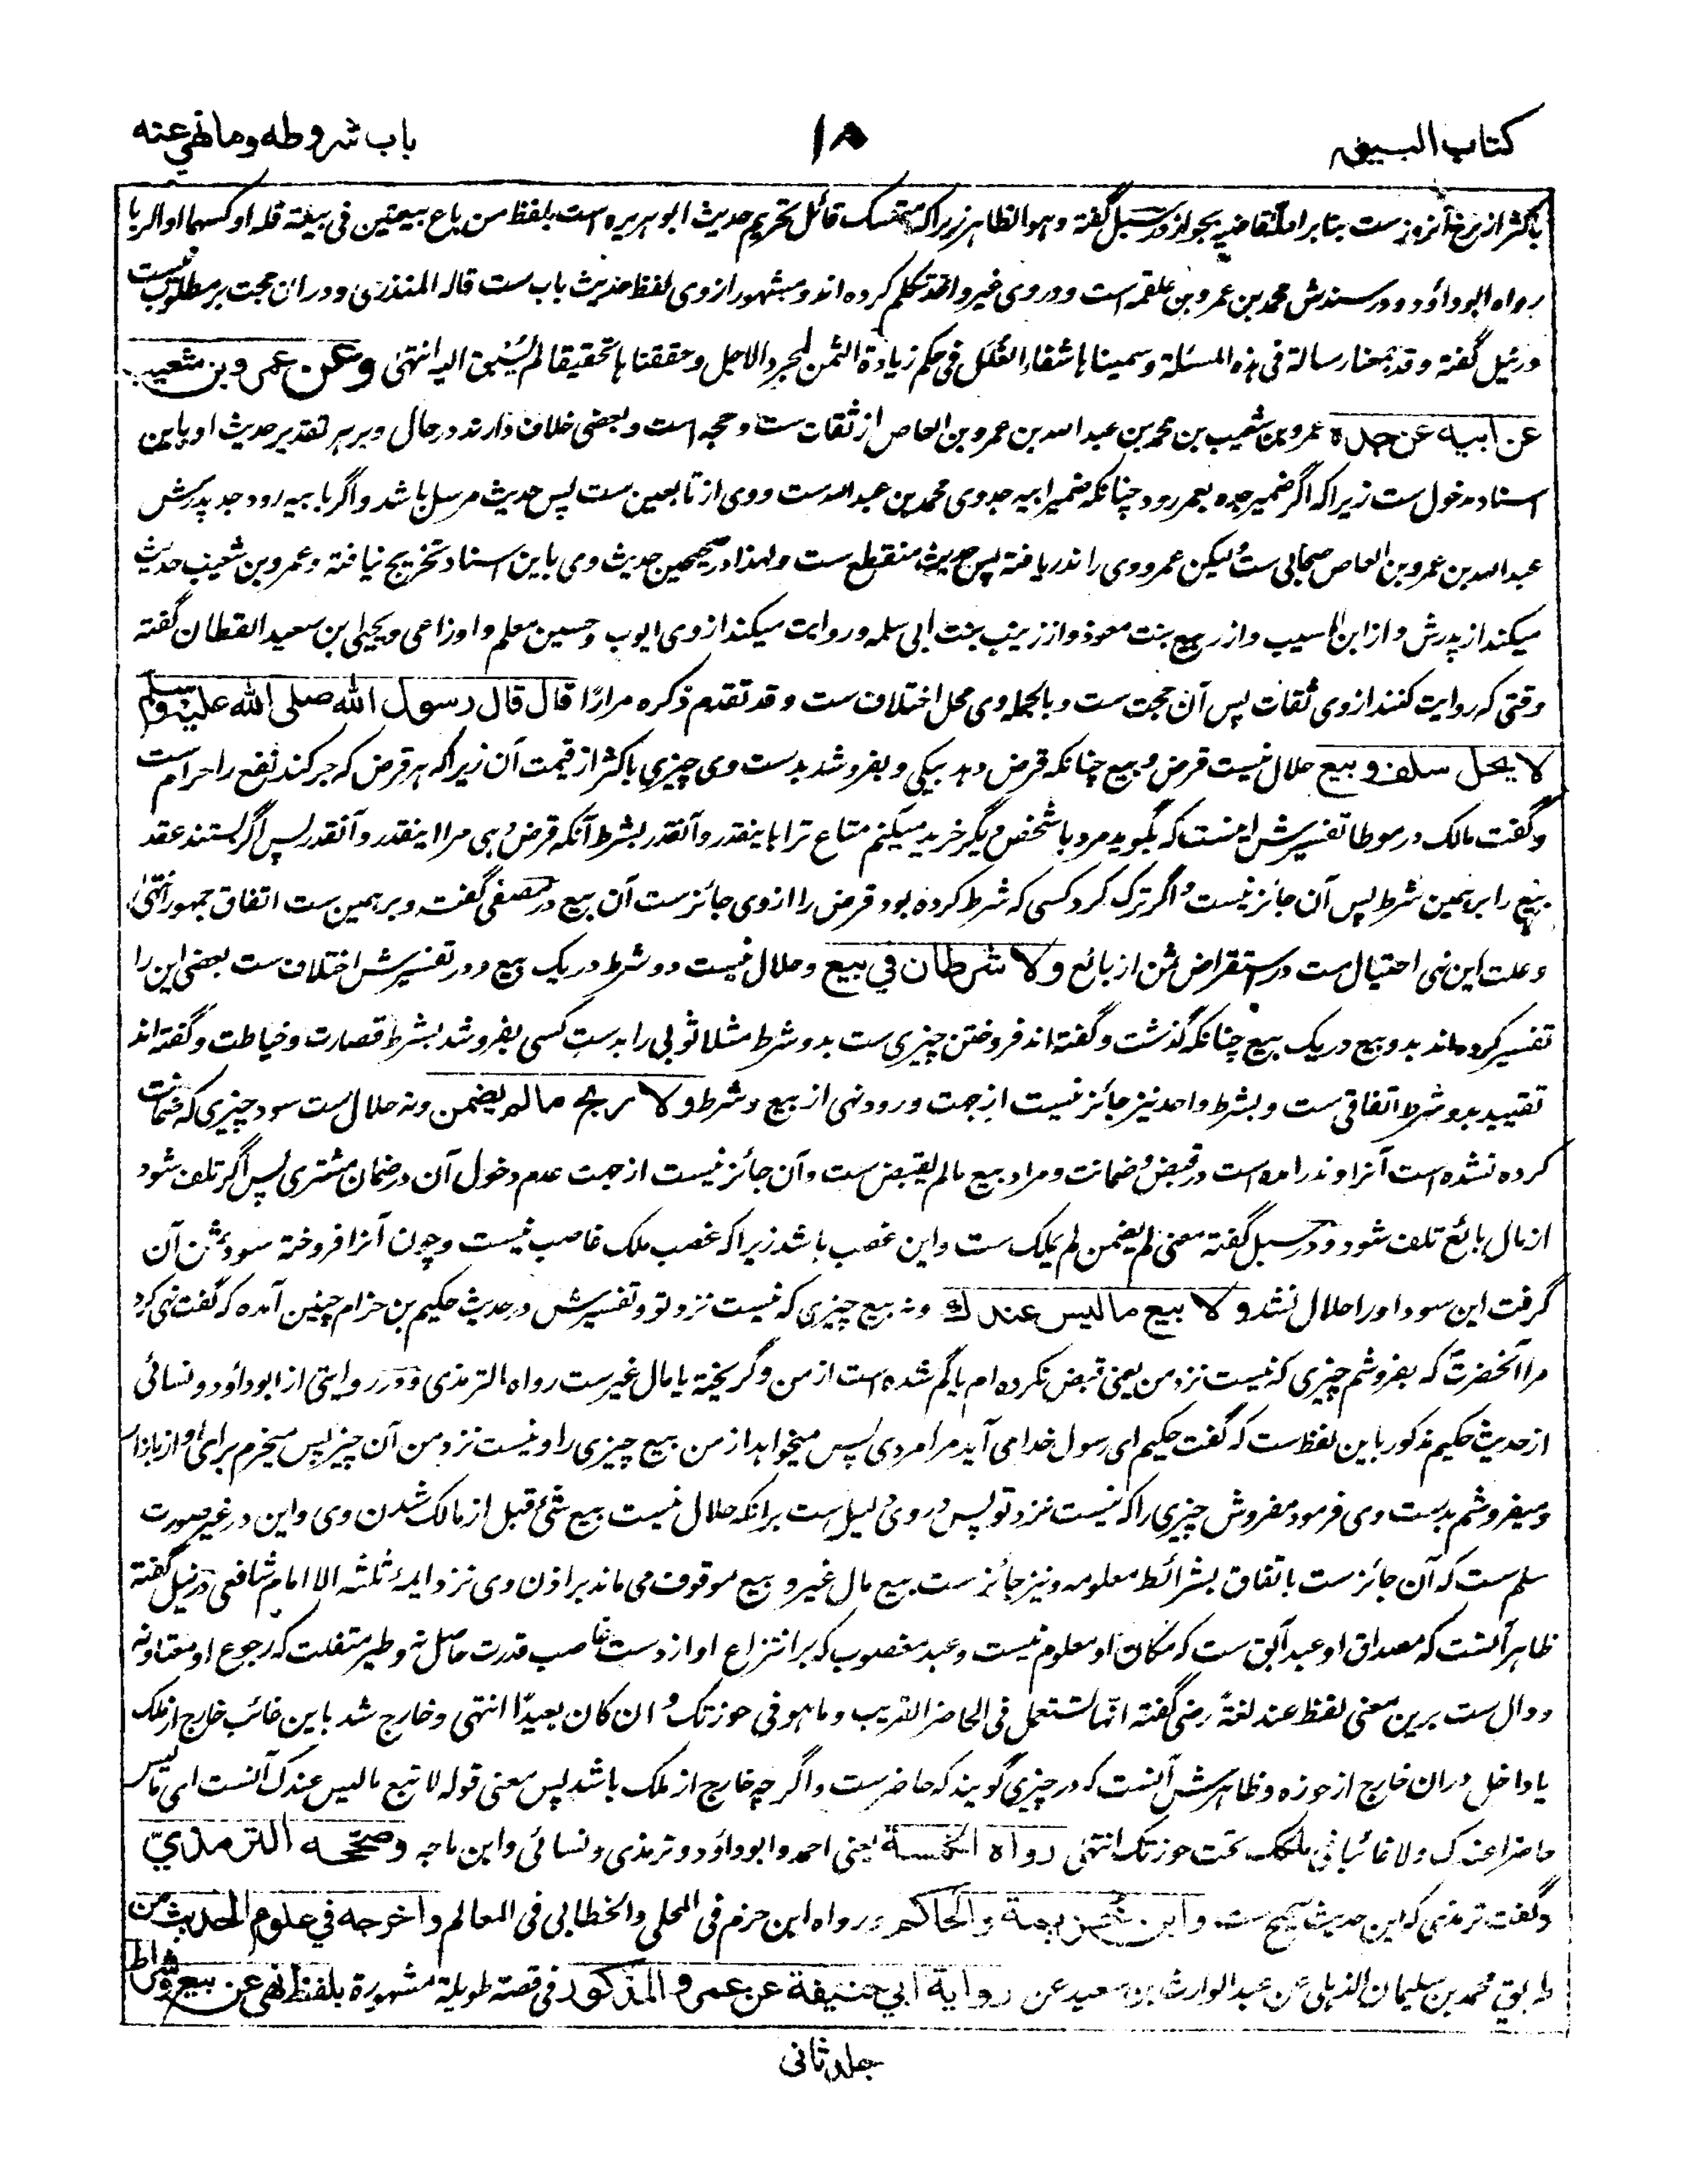 كتاب البيوع
١٨
باب شروطه وما نهي عنه
باكثر از نرخ آنروز ست بنابر ادلهٔ قاضیه بجواز ودر سبل گفته وهو الظاهر زیراکه متمسک قائل بتحریم حدیث ابو هریره است بلفظ من باع بیعتین فی بیعة فله اوکسهما او الربا
رواه ابو داؤد ودر سندش محمد بن عمرو بن علقمه است ودر وی غیر واحد تکلم کرده اند ومشهور از وی لفظ حدیث باب ست قاله المنذری ودران حجت بر مطلوب نیست
در نیل گفته وقد جمعنا رسالة فی هذه المسئلة وسمیناها شفاء الغلل فی حکم زیادة الثمن لمجرد الاجل وحققناها تحقیقا لم نسبق الیه انتهی وعن عمرو بن شعيب
عن ابيه عن جده عمرو بن شعیب بن محمد بن عبد الله بن عمرو بن العاص از ثقات ست وحجه است وبعضی خلاف دارند در حال وی بر هر تقدیر حدیث او باین
اسناد مدخول ست زیراکه اگر ضمیر جده بعمرو رود چنانکه ضمیر ابیه جد وی محمد بن عبد الله ست ووی از تابعین ست پس حدیث مرسل باشد واگر بابیه رود جد پدرش
عبد الله بن عمرو بن العاص صحابی ست لیکن عمرو وی را ندریافته پس حدیث منقطع ست ولهذا در صحیحین حدیث وی باین اسناد تخریج نیافته وعمرو بن شعیب حدیث
میکند از پدرش واز ابن المسیب واز ربیع بنت معوذ واز زینب بنت ابی سلمه وروایت میکند از وی ایوب وحسین معلم واوزاعی ویحیی بن سعید القطان گفته
وقتی که روایت کنند از وی ثقات پس آن حجت ست وبالجمله وی محل اختلاف ست وقد تقدم ذکره مرارًا قال قال رسول الله صلى الله عليه وسلم
لا يحل سلف وبيع حلال نیست قرض وبیع چنانکه قرض دهد بیکی وبفروشد بدست وی چیزی باکثر از قیمت آن زیراکه هر قرض که جر کند نفع را حرام ست
وگفت مالک در موطا تفسیرش اینست که بگوید مرد با شخص دیگر خرید میکنم متاع ترا باینقدر وآنقدر بشرط آنکه قرض دهی مرا اینقدر وآنقدر پس اگر بستند عقد
بیع را بر همین شرط پس آن جائز نیست واگر ترک کرد کسی که شرط کرده بود قرض را از وی جائز ست آن بیع در مصفی گفته وبر همین ست اتفاق جمهور انتهی
وعلت این نهی احتیال ست در استقراض ثمن از بائع ولا شرطان في بيع وحلال نیست دو شرط در یک بیع ودر تفسیرش اختلاف ست بعضی این را
تفسیر کرده اند بدو بیع در یک بیع چنانکه گذشت وگفته اند فروختن چیزی ست بدو شرط مثلا ثوبی را بدست کسی بفروشد بشرط قصارت وخیاطت وگفته اند
تقیید بدو شرط اتفاقی ست وبشرط واحد نیز جائز نیست از جهت ورود نهی از بیع وشرط ولا ربح ما لم يضمن ونه حلال ست سود چیزی که ضمانت
کرده نشده است آنرا وندرآمده است در قبض وضمانت ومراد بیع مالم یقبض ست وآن جائز نیست از جهت عدم دخول آن در ضمان مشتری پس اگر تلف شود
از مال بائع تلف شود ودر سبل گفته معنی لم یضمن لم یملک ست واین غصب باشد زیراکه غصب ملک غاصب نیست وچون آنرا فروخته سود ثمن آن
گرفت این سود او را حلال نشد ولا بيع ما ليس عندك ونه بیع چیزی که نیست نزد تو وتفسیرش در حدیث حکیم بن حزام چنین آمده که گفت نهی کرد
مرا آنحضرت که بفروشم چیزی که نیست نزد من یعنی قبض نکرده ام یا گم شده است از من وگریخته یا مال غیر ست رواه الترمذی ودر روایتی از ابو داؤد ونسائی
از حدیث حکیم مذکور باین لفظ ست که گفت حکیم ای رسول خدا می آید مرا مردی پس میخواهد از من بیع چیزی را ونیست نزد من آن چیز پس میخرم برای او از بازار
ومیفروشم بدست وی فرمود مفروش چیزی را که نیست نزد تو پس در وی دلیل ست برآنکه حلال نیست بیع شئ قبل از مالک شدن وی واین در غیر صورت
سلم ست که آن جائز ست باتفاق بشرائط معلومه ونیز جائز ست بیع مال غیر وبیع موقوف می ماند بر اذن وی نزد ایمهٔ ثلثه الا امام شافعی در نیل گفته
ظاهر آنست که مصداق او عبد آبق ست که مکان او معلوم نیست وعبد مغصوب که بر انتزاع او از دست غاصب قدرت حاصل نه وطیر متفلت که رجوع او معتاد نه
ودال ست برین معنی لفظ عند لغةً رضی گفته انها تستعمل فی الحاضر القریب وما هو فی حوزتک وان کان بعیدًا انتهی وخارج شد باین غائب خارج از ملک
یا داخل دران خارج از حوزه وظاهرش آنست که در چیزی گویند که حاضر ست واگرچه خارج از ملک باشد پس معنی قوله لا تبع ما لیس عندک آنست ای ما لیس
حاضرا عندک ولا غائبا فی ملکک تحت حوزتک انتهی رواه الخمسة یعنی احمد وابو داؤد وترمذی ونسائی وابن ماجه وصححه الترمذيّ
وگفت ترمذی که این حدیث صحیح ست وابن خزيمة والحاكم ورواه ابن حزم فی المحلی والخطابی فی المعالم واخرجه في علوم الحديث من
طریق محمد بن سلیمان الذهلی عن عبد الوارث بن سعید عن رواية ابي حنيفة عن عمرو المذكور فی قصة طویلة مشهورة بلفظ نهى عن بيع وشرط
جلد ثانی